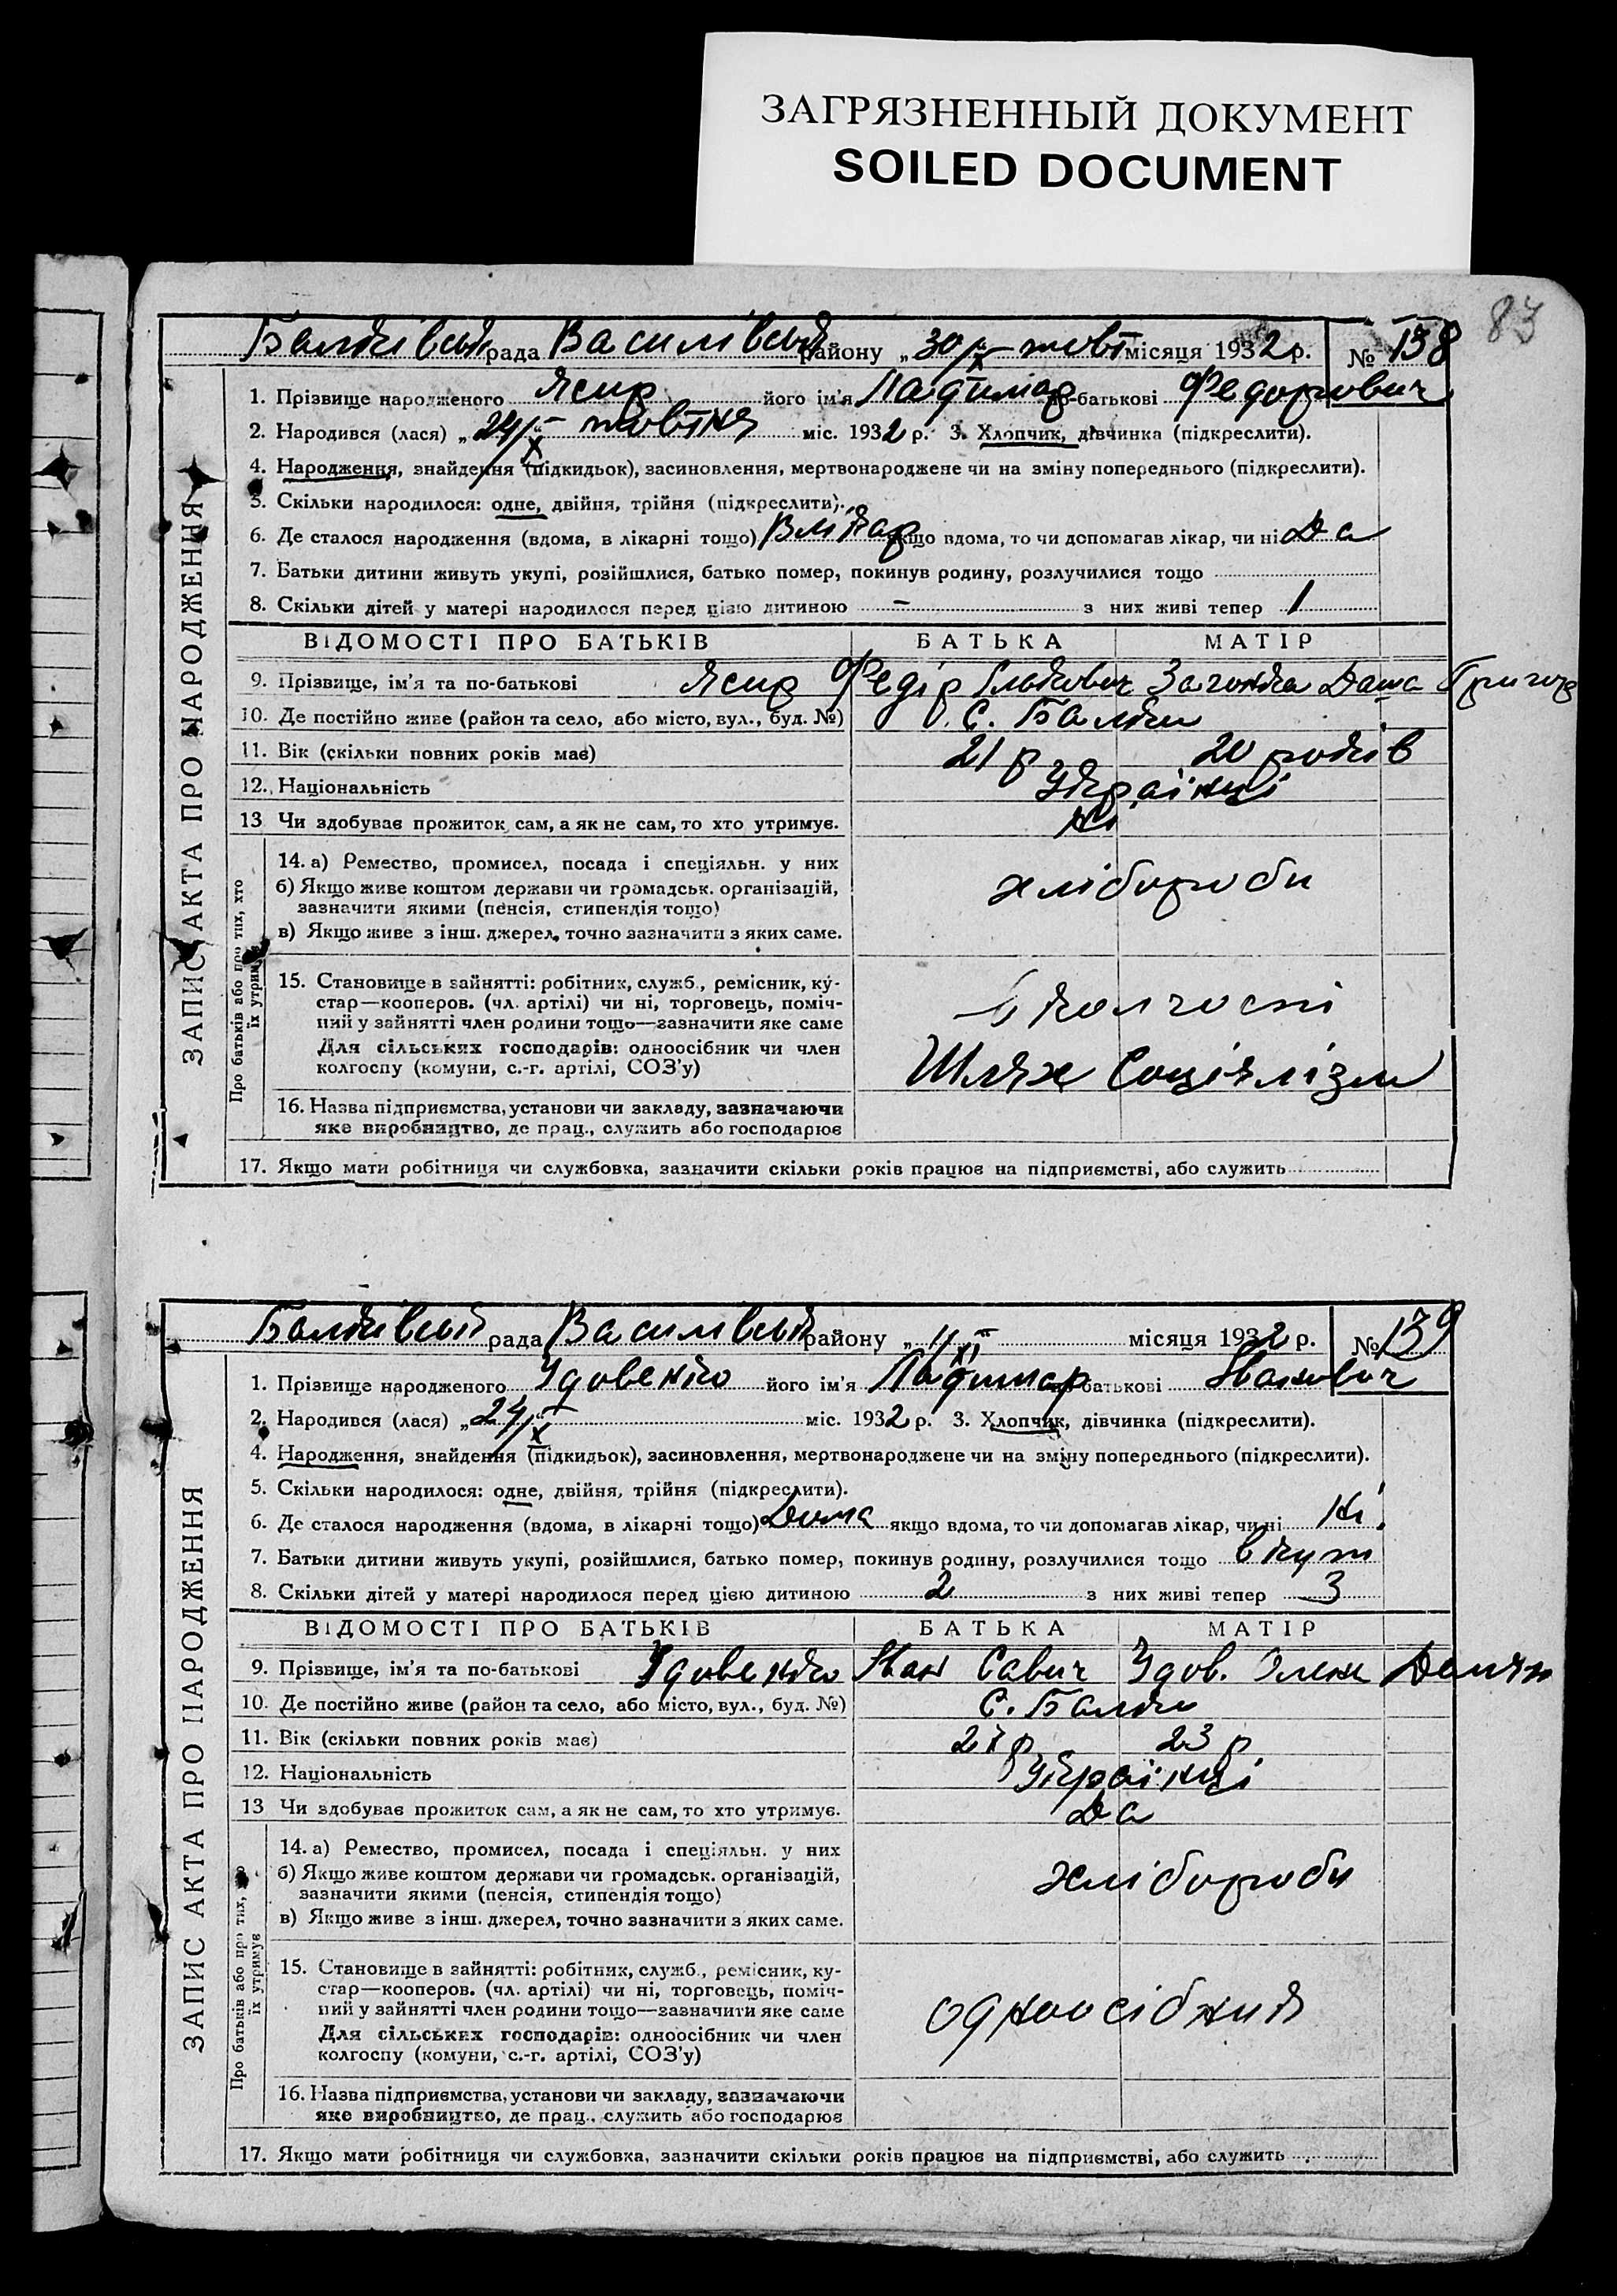 ЗАГРЯЗНЕННЫЙ ДОКУМЕНТ
SOILED DOCUMENT
83
рада району „30/X жовт місяця 1932 р. № 138
1. Прізвище народженого Ясир його ім'я по-батькові Федорович
2. Народився (лася) „24/X жовтня міс. 1932 р. 3. Хлопчик, дівчинка (підкреслити).
4. Народження, знайдення (підкидьок), засиновлення, мертвонароджене чи на зміну попереднього (підкреслити).
5. Скільки народилося: одне, двійня, трійня (підкреслити).
6. Де сталося народження (вдома, в лікарні тощо) якщо вдома, то чи допомагав лікар, чи ні Да
7. Батьки дитини живуть укупі, розійшлися, батько помер, покинув родину, розлучилися тощо
8. Скільки дітей у матері народилося перед цією дитиною - з них живі тепер 1
ВІДОМОСТІ ПРО БАТЬКІВ БАТЬКА МАТІР
9. Прізвище, ім'я та по-батькові Ясир Федір Даша
10. Де постійно живе (район та село, або місто, вул., буд. №) С. Балки
11. Вік (скільки повних років має) 21 р 20 років
12. Національність Українці
13 Чи здобуває прожиток сам, а як не сам, то хто утримує.
14. а) Ремество, промисел, посада і спеціяльн. у них хлібороби
б) Якщо живе коштом держави чи громадськ. організацій,
зазначити якими (пенсія, стипендія тощо)
в) Якщо живе з інш. джерел, точно зазначити з яких саме.
15. Становище в зайнятті: робітник, служб., ремісник, ку-
стар—кооперов. (чл. артілі) чи ні, торговець, поміч- колгоспі
ний у зайнятті член родини тощо—зазначити яке саме
Для сільських господарів: одноосібник чи член
колгоспу (комуни, с.-г. артілі, СОЗ'у) Шлях Соціялізм
16. Назва підприємства, установи чи закладу, зазначаючи
яке виробництво, де прац., служить або господарює
17. Якщо мати робітниця чи службовка, зазначити скільки років працює на підприємстві, або служить
ЗАПИС АКТА ПРО НАРОДЖЕННЯ
Про батьків або про тих, хто
їх утримує
рада району „11/XI місяця 1932 р. № 139
1. Прізвище народженого Удовенко його ім'я по-батькові Іванович
2. Народився (лася) „24/X міс. 1932 р. 3. Хлопчик, дівчинка (підкреслити).
4. Народження, знайдення (підкидьок), засиновлення, мертвонароджене чи на зміну попереднього (підкреслити).
5. Скільки народилося: одне, двійня, трійня (підкреслити).
6. Де сталося народження (вдома, в лікарні тощо) Дома якщо вдома, то чи допомагав лікар, чи ні Ні
7. Батьки дитини живуть укупі, розійшлися, батько помер, покинув родину, розлучилися тощо
8. Скільки дітей у матері народилося перед цією дитиною 2 з них живі тепер 3
ВІДОМОСТІ ПРО БАТЬКІВ БАТЬКА МАТІР
9. Прізвище, ім'я та по-батькові Удовенко Іван Савич Удов.
10. Де постійно живе (район та село, або місто, вул., буд. №) С. Балки
11. Вік (скільки повних років має) 27 р 23 р
12. Національність Українці
13 Чи здобуває прожиток сам, а як не сам, то хто утримує. Да
14. а) Ремество, промисел, посада і спеціяльн. у них хлібороби
б) Якщо живе коштом держави чи громадськ. організацій,
зазначити якими (пенсія, стипендія тощо)
в) Якщо живе з інш. джерел, точно зазначити з яких саме.
15. Становище в зайнятті: робітник, служб., ремісник, ку-
стар—кооперов. (чл. артілі) чи ні, торговець, поміч-
ний у зайнятті член родини тощо—зазначити яке саме одноосібник
Для сільських господарів: одноосібник чи член
колгоспу (комуни, с.-г. артілі, СОЗ'у)
16. Назва підприємства, установи чи закладу, зазначаючи
яке виробництво, де прац., служить або господарює
17. Якщо мати робітниця чи службовка, зазначити скільки років працює на підприємстві, або служить
ЗАПИС АКТА ПРО НАРОДЖЕННЯ
Про батьків або про тих,
їх утримує